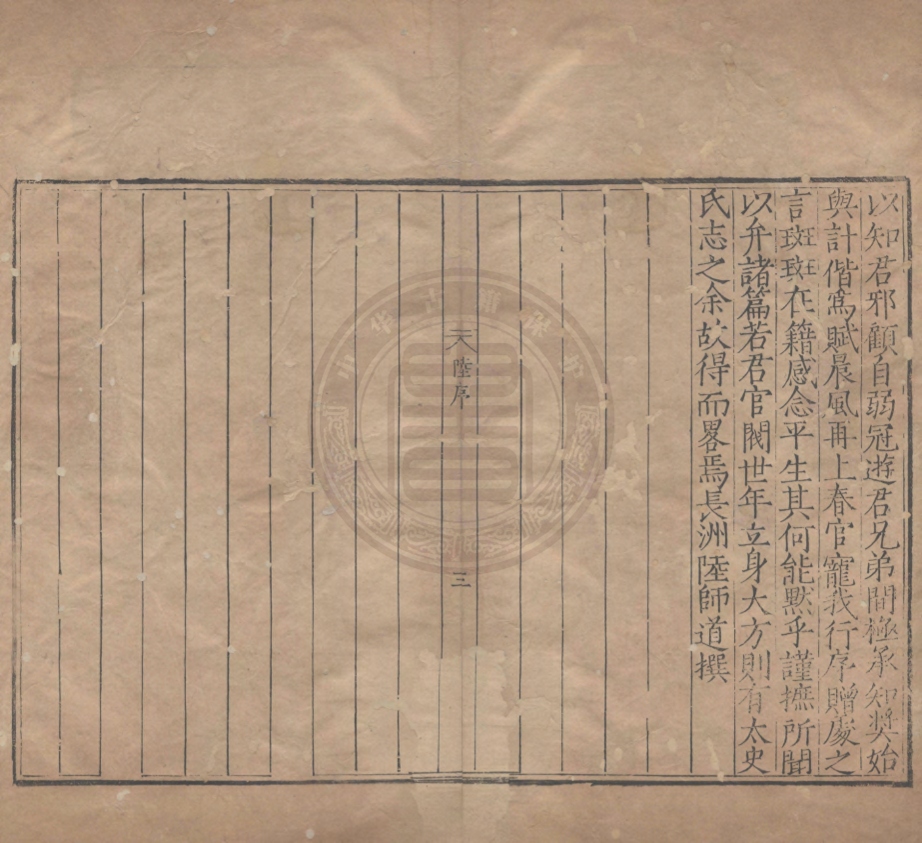 以知君邪顧自弱冠遊君兄弟間極承知奬始
與計偕爲賦晨風再上春官寵我行序贈處之
言斑斑在籍感念平生其何能黙乎謹摭所聞
以弁諸篇若君官閥世年立身大方則有太史
氏志之余故得而畧焉長洲陸師道撰
天 陸序
三